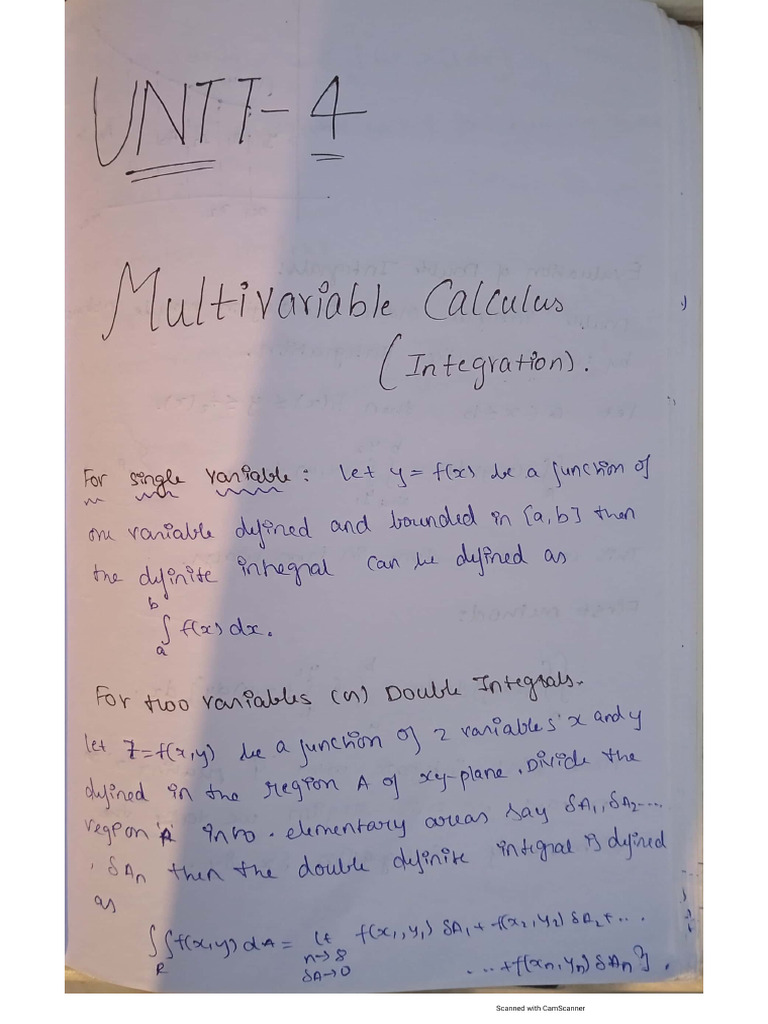 UNIT-4
Multivariable Calculus
(Integration).
For single variable: let y = f(x) be a function of
one variable defined and bounded in [a,b] then
the definite integral can be defined as
∫ₐᵇ f(x) dx.
For two variables (or) Double Integrals.
let z=f(x,y) be a function of 2 variables x and y
defined in the region A of xy-plane. Divide the
region A into . elementary areas say δA₁, δA₂ ...
, δAn then the double definite integral is defined
as
∫∫_R f(x,y) dA = lt n→8 δA→0 f(x₁,y₁) δA₁ + f(x₂,y₂) δA₂ + ..
... + f(xn,yn) δAn}.
Scanned with CamScanner